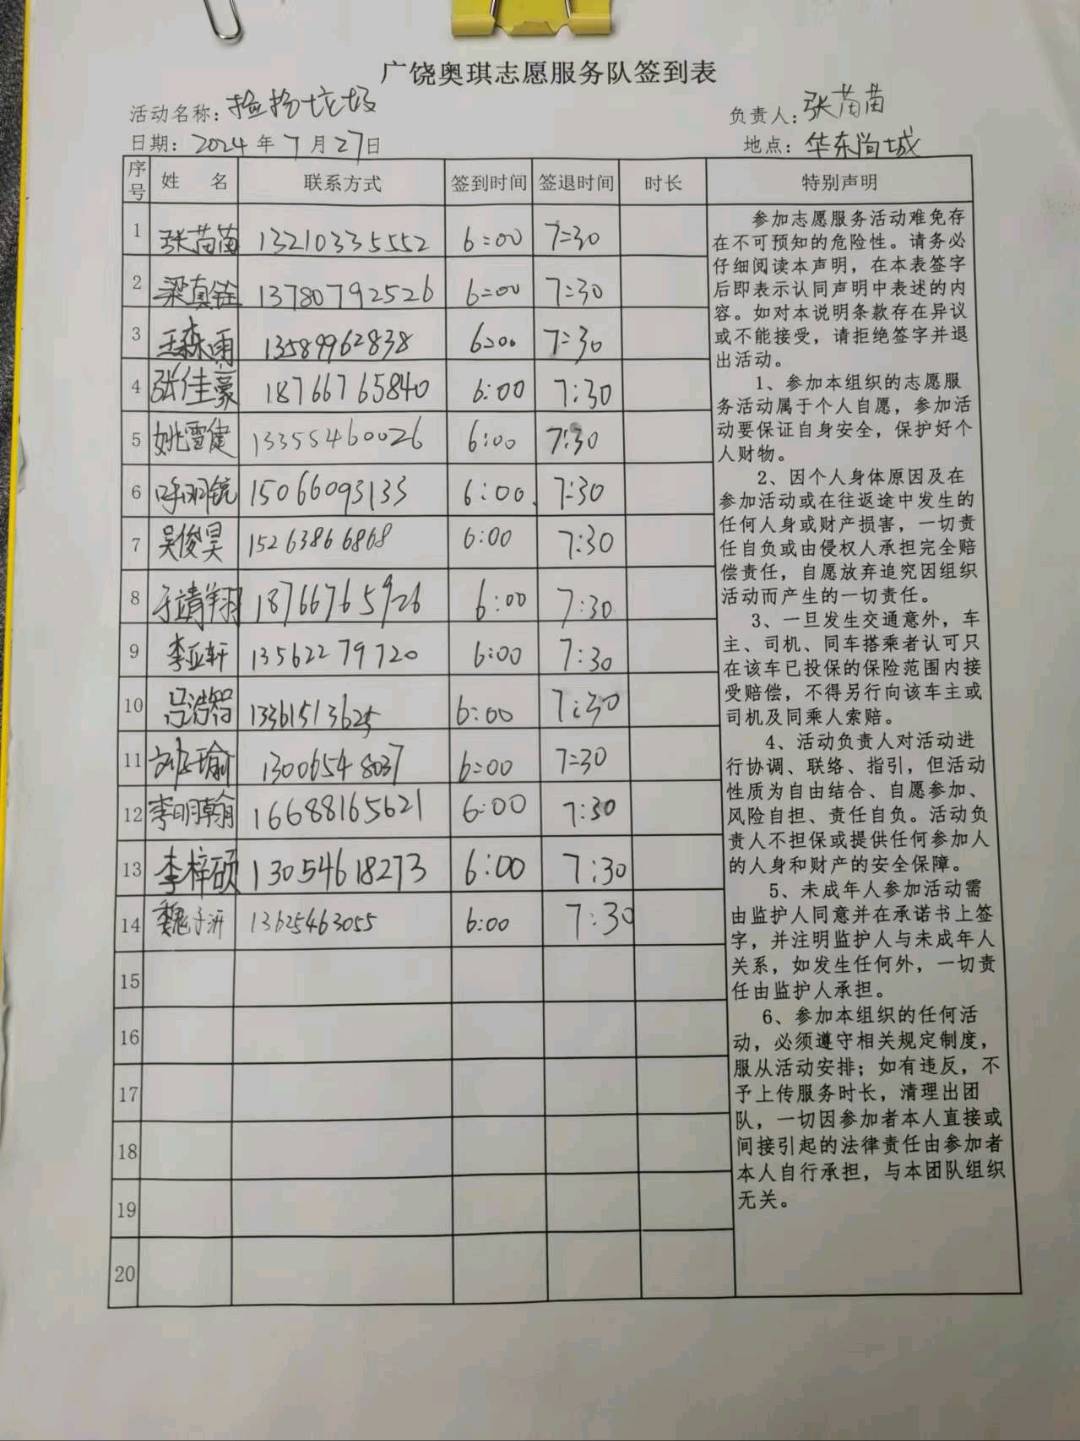 广饶奥琪志愿服务队签到表
活动名称：捡拾垃圾 负责人：张苘苗
日期：2024年7月27日 地点：华东尚城
序号 姓 名 联系方式 签到时间 签退时间 时长 特别声明
1 张苘苗 13210335552 6:00 7:30
2 梁真铨 13780792526 6:00 7:30
3 王森雨 13589962838 6:00 7:30
4 张佳豪 18766765840 6:00 7:30
5 姚雪健 13355460026 6:00 7:30
6 15066093133 6:00 7:30
7 吴俊昊 15263866868 6:00 7:30
8 于靖翔 18766765926 6:00 7:30
9 李亚轩 13562279720 6:00 7:30
10 吕浩智 13361513625 6:00 7:30
11 13006548037 6:00 7:30
12 李明翰 16688165621 6:00 7:30
13 李梓硕 13054618273 6:00 7:30
14 魏子沂 13625463055 6:00 7:30
15
16
17
18
19
20
参加志愿服务活动难免存
在不可预知的危险性。请务必
仔细阅读本声明，在本表签字
后即表示认同声明中表述的内
容。如对本说明条款存在异议
或不能接受，请拒绝签字并退
出活动。
1、参加本组织的志愿服
务活动属于个人自愿，参加活
动要保证自身安全，保护好个
人财物。
2、因个人身体原因及在
参加活动或在往返途中发生的
任何人身或财产损害，一切责
任自负或由侵权人承担完全赔
偿责任，自愿放弃追究因组织
活动而产生的一切责任。
3、一旦发生交通意外，车
主、司机、同车搭乘者认可只
在该车已投保的保险范围内接
受赔偿，不得另行向该车主或
司机及同乘人索赔。
4、活动负责人对活动进
行协调、联络、指引，但活动
性质为自由结合、自愿参加、
风险自担、责任自负。活动负
责人不担保或提供任何参加人
的人身和财产的安全保障。
5、未成年人参加活动需
由监护人同意并在承诺书上签
字，并注明监护人与未成年人
关系，如发生任何外，一切责
任由监护人承担。
6、参加本组织的任何活
动，必须遵守相关规定制度，
服从活动安排；如有违反，不
予上传服务时长，清理出团
队，一切因参加者本人直接或
间接引起的法律责任由参加者
本人自行承担，与本团队组织
无关。